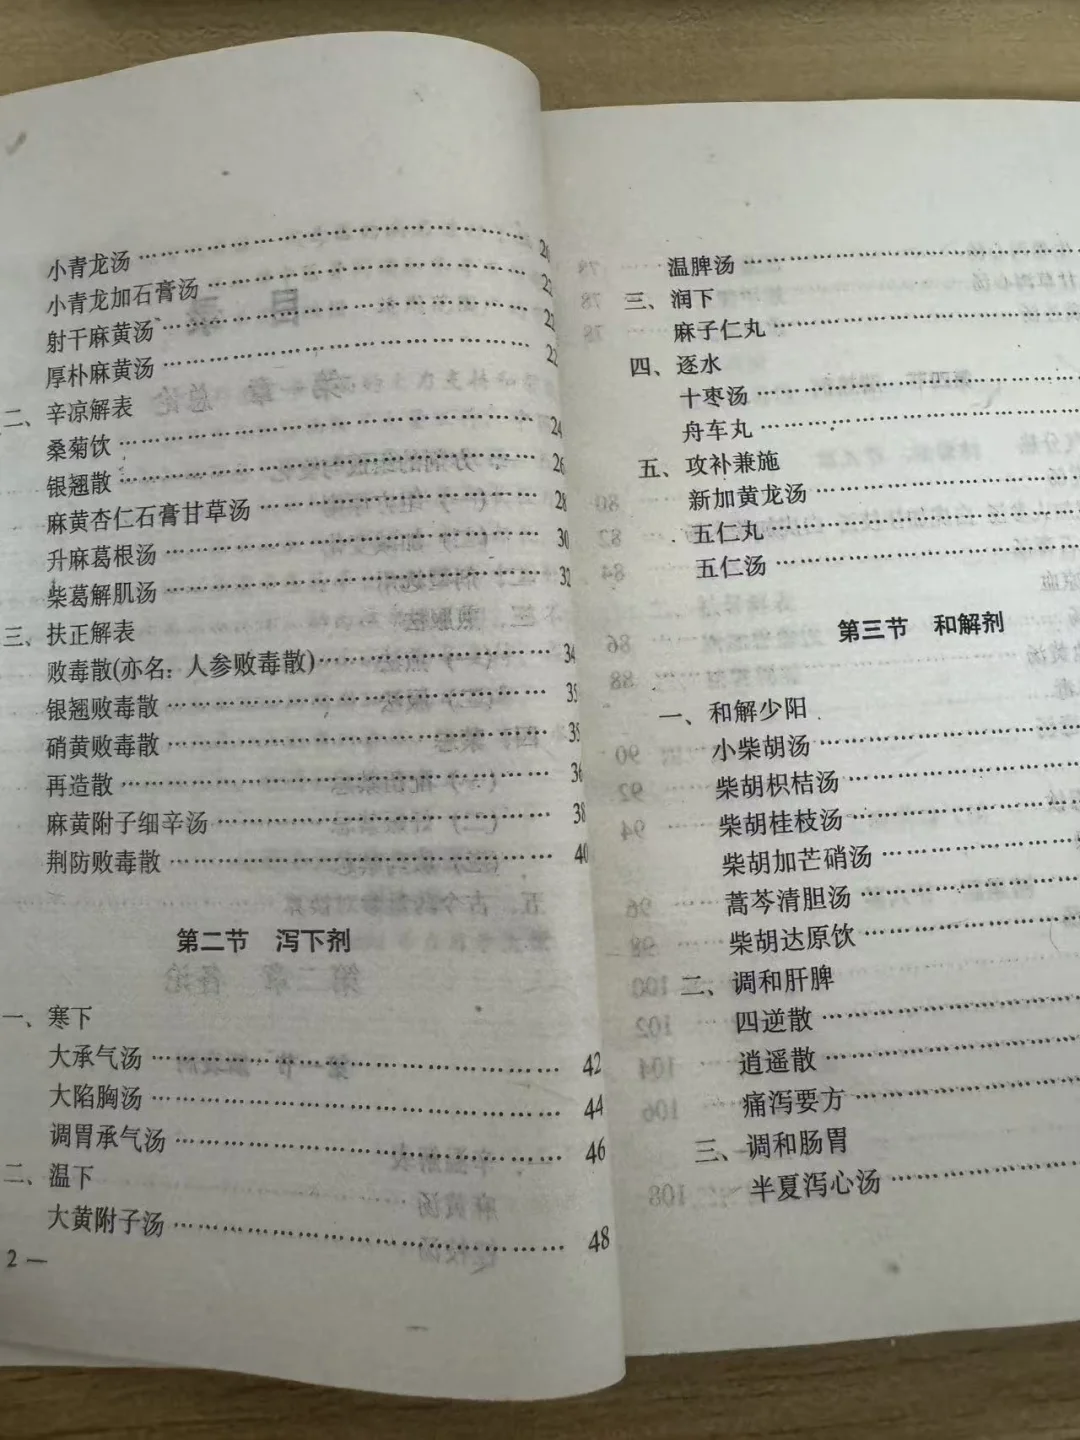 小青龙汤……………………………………20
小青龙加石膏汤……………………………22
射干麻黄汤…………………………………22
厚朴麻黄汤…………………………………22
二、辛凉解表
桑菊饮………………………………………24
银翘散………………………………………26
麻黄杏仁石膏甘草汤………………………28
升麻葛根汤…………………………………30
柴葛解肌汤…………………………………32
三、扶正解表
败毒散(亦名：人参败毒散)…………………34
银翘败毒散…………………………………35
硝黄败毒散…………………………………35
再造散………………………………………36
麻黄附子细辛汤……………………………38
荆防败毒散…………………………………40
第二节 泻下剂
一、寒下
大承气汤……………………………………42
大陷胸汤……………………………………44
调胃承气汤…………………………………46
二、温下
大黄附子汤…………………………………48
2 —
温脾汤………………………
三、润下
麻子仁丸……………………
四、逐水
十枣汤………………………
舟车丸………………………
五、攻补兼施
新加黄龙汤…………………
五仁丸………………………
五仁汤………………………
第三节 和解剂
一、和解少阳
小柴胡汤……………………
柴胡枳桔汤…………………
柴胡桂枝汤…………………
柴胡加芒硝汤………………
蒿芩清胆汤…………………
柴胡达原饮…………………
二、调和肝脾
四逆散………………………
逍遥散………………………
痛泻要方……………………
三、调和肠胃
半夏泻心汤…………………